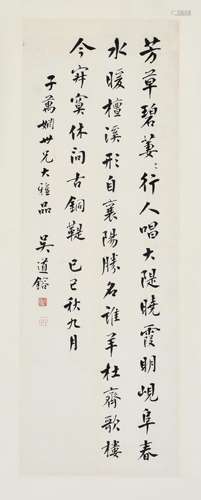 芳草碧萋〻行人唱大隄曉霞明峴阜春
水暖檀溪形自襄陽勝名誰羊杜齊歌樓
今寂寞休問古銅鞮 己巳秋九月
子萬姻世兄大雅品 吳道鎔